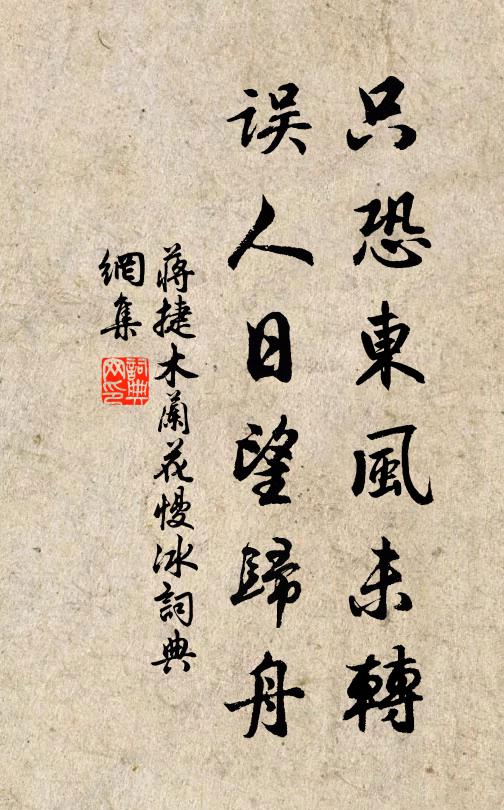 只恐東風未轉
误人日望歸舟
蔣捷木蘭花慢冰詞典
網集
詞典网印